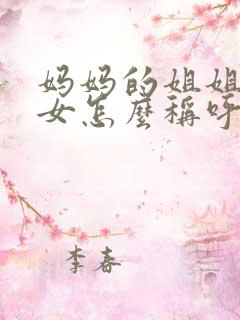 妈妈的姐姐
女怎麼稱呼
李春